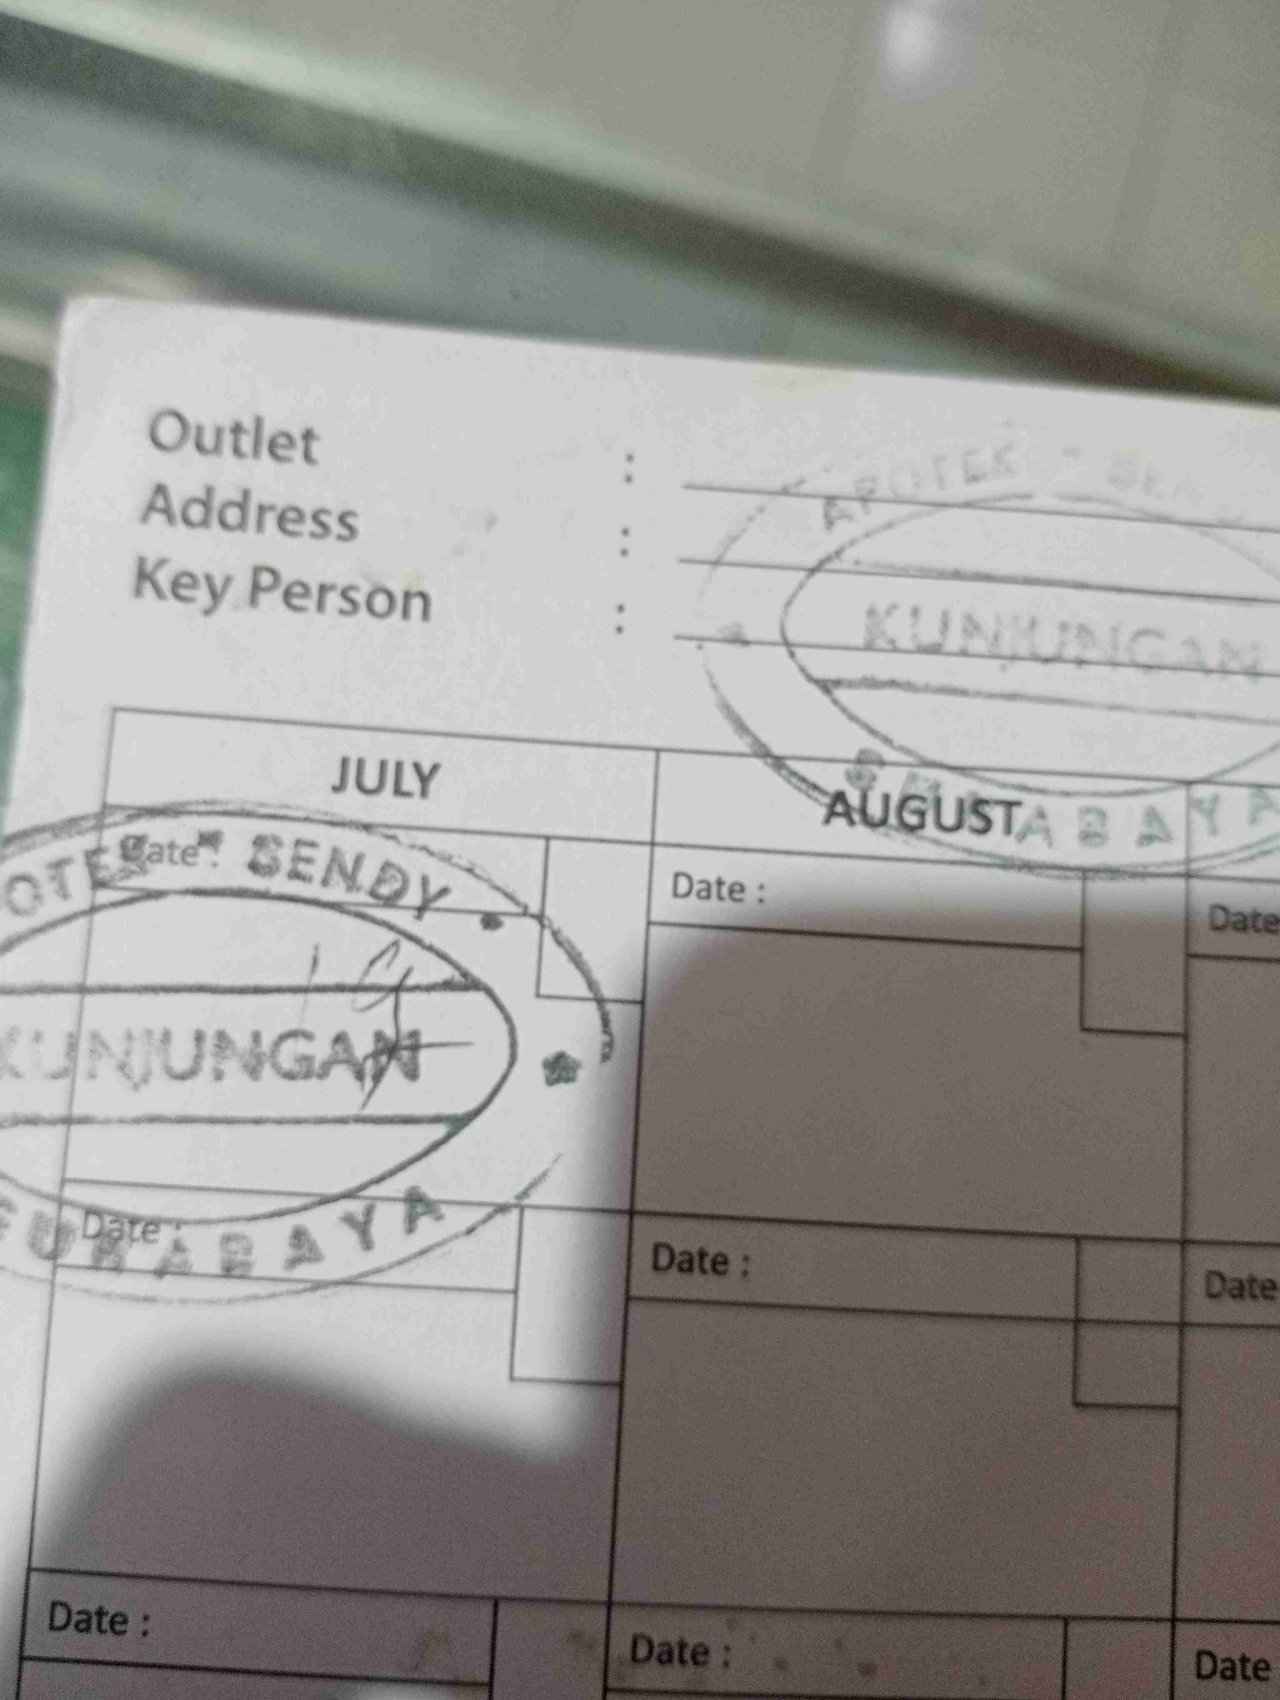 Outlet :
Address :
Key Person :
APOTEK
KUNJUNGAN
SURABAYA
JULY
AUGUST
Date :
SENDY
KUNJUNGAN
SURABAYA
Date :
Date
Date :
Date :
Date
Date :
Date :
Date